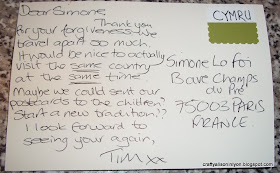 Dear Simone,
Thank you
for your forgiveness. We
travel apart so much.
It would be nice to actually
visit the same country
at the same time.
Maybe we could sent our
postcards to the children?
Start a new tradition??
I look forward to
seeing your again,
Tim xx
CYMRU
Simone Lo Foi
Bave Champs
du Pré
75003 PARIS
FRANCE.
craftyalisoninlyon.blogspot.com